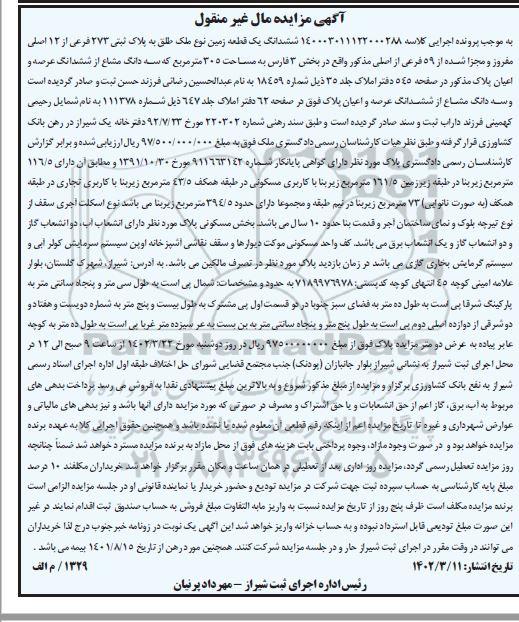 آگهی مزایده مال غیر منقول
به موجب پرونده اجرایی کلاسه ۱۴۰۰۰۳۰۱۱۱۲۲۰۰۰۲۸۸ ششدانگ یک قطعه زمین نوع ملک طلق به پلاک ثبتی ۲۷۳ فرعی از ۱۲ اصلی
مفروز و مجزا شده از ۵۹ فرعی از اصلی مذکور واقع در بخش ۳ فارس به مساحت ۳۰۵ مترمربع که سه دانگ مشاع از ششدانگ عرصه و
اعیان پلاک مذکور در صفحه ۵۴۵ دفتر املاک جلد ۳۵ ذیل شماره ۱۸۴۵۹ به نام عبدالحسین رضائی فرزند حسن ثبت و صادر گردیده است
و سه دانگ مشاع از ششدانگ عرصه و اعیان پلاک فوق در صفحه ۶۲ دفتر املاک جلد ۶۴۷ ذیل شماره ۱۱۱۳۷۸ به نام شمایل رحیمی
کهمینی فرزند داراب ثبت و سند صادر گردیده است و طبق سند رهنی شماره ۲۲۰۳۰۲ مورخ ۹۲/۷/۲۳ دفترخانه یک شیراز در رهن بانک
کشاورزی قرار گرفته و طبق نظر هیات کارشناسان رسمی دادگستری ملک فوق به مبلغ ۹۷/۵۰۰/۰۰۰/۰۰۰ ریال ارزیابی شده و برابر گزارش
کارشناسان رسمی دادگستری پلاک مورد نظر دارای گواهی پایانکار شماره ۹۱۱۶۶۳۱۴۲ مورخ ۱۳۹۱/۱۰/۳۰ و مطابق آن دارای ۱۱۶/۵
مترمربع زیربنا در طبقه زیرزمین ۱۶۱/۵ مترمربع زیربنا با کاربری مسکونی در طبقه همکف ۴۳/۵ مترمربع زیربنا با کاربری تجاری در طبقه
همکف (به صورت نانوایی) ۷۳ مترمربع زیربنا در نیم طبقه و مجموعا دارای حدود ۳۹۴/۵ مترمربع زیربنا می باشد نوع اسکلت آجری سقف از
نوع تیرچه بلوک و نمای ساختمان آجر و قدمت بنا حدود ۱۰ سال می باشد. بخش مسکونی پلاک مورد نظر دارای انشعاب آب، دو انشعاب گاز
و دو انشعاب گاز و یک انشعاب برق می باشد. کف واحد مسکونی موکت دیوارها و سقف نقاشی آشپزخانه اوپن سیستم سرمایش کولر آبی و
سیستم گرمایش بخاری گازی می باشد در زمان بازدید پلاک مورد نظر در تصرف مالکین می باشد. به آدرس: شیراز، شهرک گلستان، بلوار
علامه امینی کوچه ۴۵ انتهای کوچه کدپستی: ۷۱۸۹۹۷۶۹۷۸ به حدود و مشخصات: شمال پی است به طول سی متر و پنجاه سانتی متر به
پارکینگ شرقا پی است به طول ده متر به فضای سبز جنوبا در دو قسمت اول پی مشترک به طول بیست و پنج متر به شماره دویست و هفتاد و
دو شرقی از دوازده اصلی دوم پی است به طول پنج متر و پنجاه سانتی متر به بن بست به عر سیزده متر غربا پی است به طول ده متر به کوچه
عابر پیاده به عرض دو متر مزایده پلاک فوق از مبلغ ۹۷۵۰۰۰۰۰۰۰۰ ریال در روز دوشنبه مورخ ۱۴۰۲/۳/۲۲ از ساعت ۹ صبح الی ۱۲ در
محل اجرای ثبت شیراز به نشانی شیراز بلوار جانبازان (پودنک) جنب مجتمع قضایی شورای حل اختلاف طبقه اول اداره اجرای اسناد رسمی
شیراز به نفع بانک کشاورزی برگزار و مزایده از مبلغ مذکور شروع و به بالاترین مبلغ پیشنهادی نقدا به فروش می رسد. پرداخت بدهی های
مربوط به آب، برق، گاز اعم از حق انشعابات و یا حق اشتراک و مصرف در صورتی که مورد مزایده دارای آنها باشد و نیز بدهی های مالیاتی و
عوارض شهرداری و غیره تا تاریخ مزایده اعم از اینکه رقم قطعی آن معلوم شده یا نشده باشد و همچنین حقوق اجرایی کلا به عهده برنده
مزایده خواهد بود و در صورت وجود مازاد، وجوه پرداختی بابت هزینه های فوق از محل مازاد به برنده مزایده مسترد خواهد شد ضمناً چنانچه
روز مزایده تعطیل رسمی گردد، مزایده روز اداری بعد از تعطیلی در همان ساعت و مکان مقرر برگزار خواهد شد. خریداران مکلفند ۱۰ درصد
مبلغ پایه کارشناسی به حساب سپرده ثبت جهت شرکت در مزایده تودیع و حضور خریدار یا نماینده قانونی او در جلسه مزایده الزامی است
برنده مزایده مکلف است ظرف پنج روز از تاریخ مزایده نسبت به واریز مابه التفاوت مبلغ فروش به حساب صندوق ثبت اقدام نمایند در غیر
این صورت مبلغ تودیعی قابل استرداد نبوده و به حساب خزانه واریز خواهد شد این آگهی یک نوبت در زونامه خبر جنوب درج لذا خریداران
می توانند در وقت مقرر در اجرای ثبت شیراز حار و در جلسه مزایده شرکت کنند. همچنین مورد رهن از تاریخ ۱۴۰۱/۸/۱۵ بیمه می باشد .
تاریخ انتشار: ۱۴۰۲/۳/۱۱ ۱۳۲۹/ م الف
رئیس اداره اجرای ثبت شیراز – مهرداد پرنیان